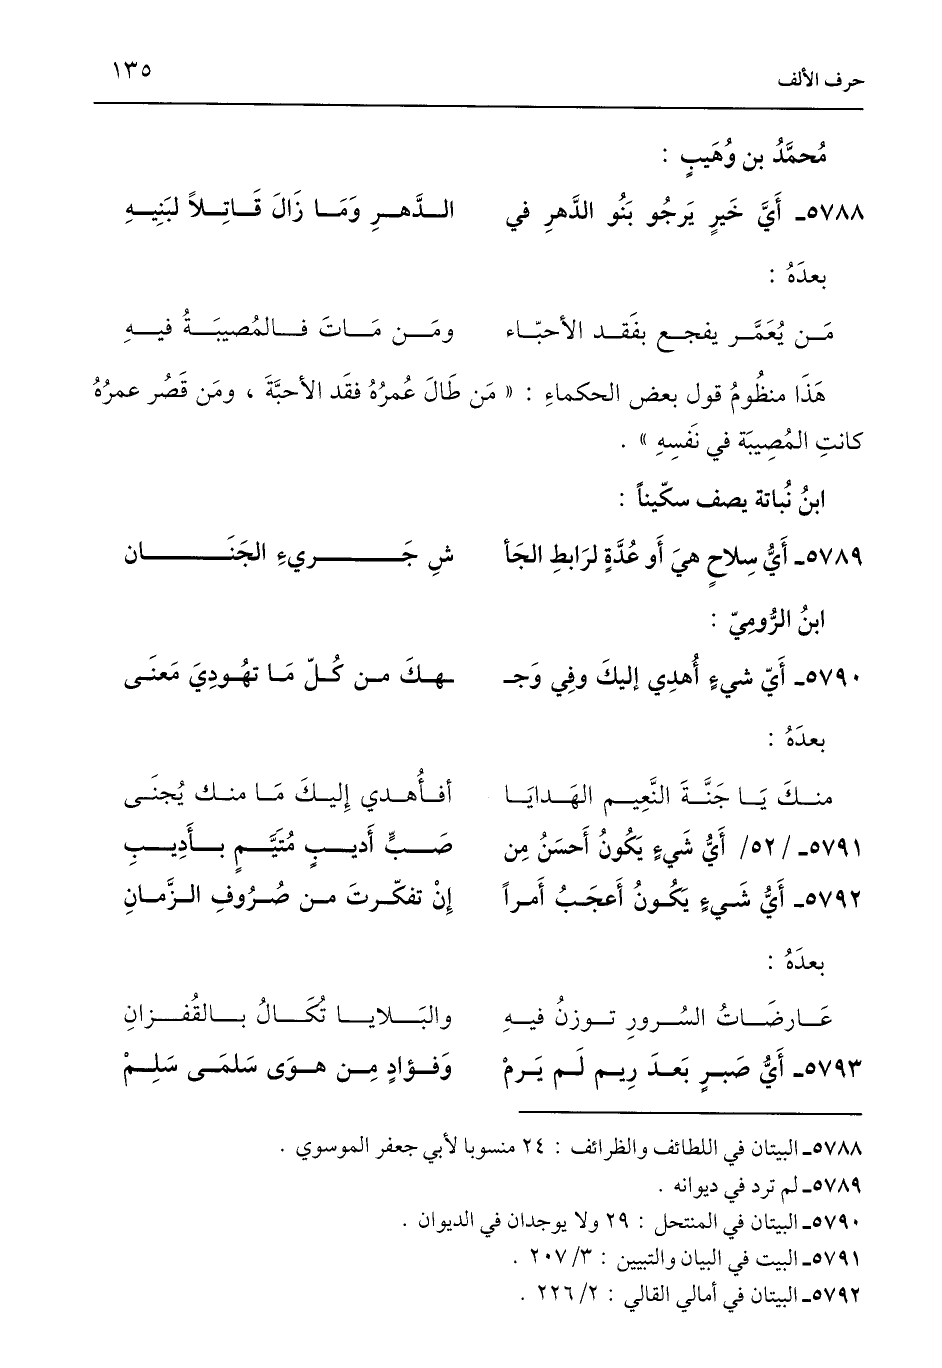 حرف الألف ١٣٥
مُحمَّدُ بن وُهَيبٍ :
٥٧٨٨ـ أَيَّ خَيرٍ يَرجُو بَنُو الدَّهرِ في الـدَّهـرِ وَمَـا زَالَ قَـاتِـلاً لبَنِيـهِ
بعدَهُ :
مَـن يُعَمَّـر يفجـع بفَقـد الأحبّـاء ومَـن مَـاتَ فـالمُصيبَـةُ فيـهِ
هَذَا منظُومُ قول بعض الحكماءِ : « مَن طَالَ عُمرُهُ فقَد الأحبَّةَ ، ومَن قَصُر عمرُهُ
كانتِ المُصِيبَة في نَفَسِهِ » .
ابنُ نُباتة يصف سكّيناً :
٥٧٨٩ـ أَيُّ سِلاحٍ هيَ أَو عُدَّةٍ لرَابطِ الجَأ شِ جَـــرِيءِ الجَنَـــان
ابنُ الرُّومِيّ :
٥٧٩٠ـ أَيّ شيءٍ أُهدِي إليكَ وفِي وَجـ ـهـكَ مـن كُـلّ مَـا تهُـودِيَ مَعنَـى
بعدَهُ :
منـكَ يَـا جَنَّـةَ النَّعِيـم الهَـدايَـا أفـأُهـدي إِليـكَ مَـا منـك يُجنَـى
٥٧٩١ـ /٥٢/ أَيُّ شَيءٍ يَكُونُ أَحسَنُ مِن صَـبٍّ أَديـبٍ مُتَيَّـمٍ بـأَدِيـبِ
٥٧٩٢ـ أَيُّ شَـيءٍ يَكُـونُ أَعجَـبُ أَمـراً إِنْ تفكّـرتَ مـن صُـرُوفِ الـزَّمـانِ
بعدَهُ :
عَـارضَـاتُ السُّـرورِ تـوزنُ فيـهِ والبَـلايـا تُكَـالُ بـالقُفـزانِ
٥٧٩٣ـ أَيُّ صَبـرٍ بَعـدَ رِيـم لَـم يَـرِمْ وَفـؤادٍ مِـن هـوَى سَلمَـى سَلِـمْ
٥٧٨٨ـ البيتان في اللطائف والظرائف : ٢٤ منسوبا لأبي جعفر الموسوي .
٥٧٨٩ـ لم ترد في ديوانه .
٥٧٩٠ـ البيتان في المنتحل : ٢٩ ولا يوجدان في الديوان .
٥٧٩١ـ البيت في البيان والتبيين : ٢٠٧/٣ .
٥٧٩٢ـ البيتان في أمالي القالي : ٢٢٦/٢ .